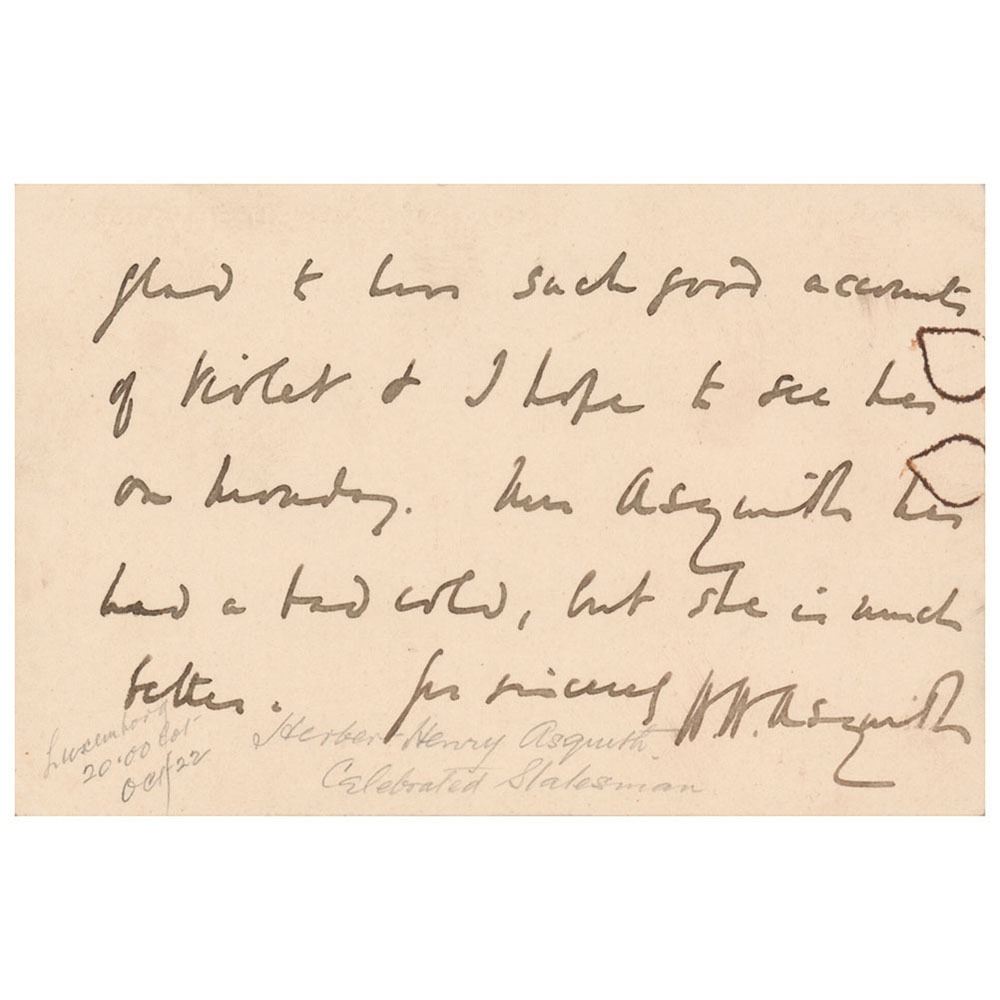 glad to have such good accounts
of Violet & I hope to see her
on Monday. Mrs Asquith has
had a bad cold, but she is much
better. Yrs sincerely HH. Asquith
Herbert Henry Asquith
Celebrated Statesman
Luxemborg
20.00 Lot
Oct/22